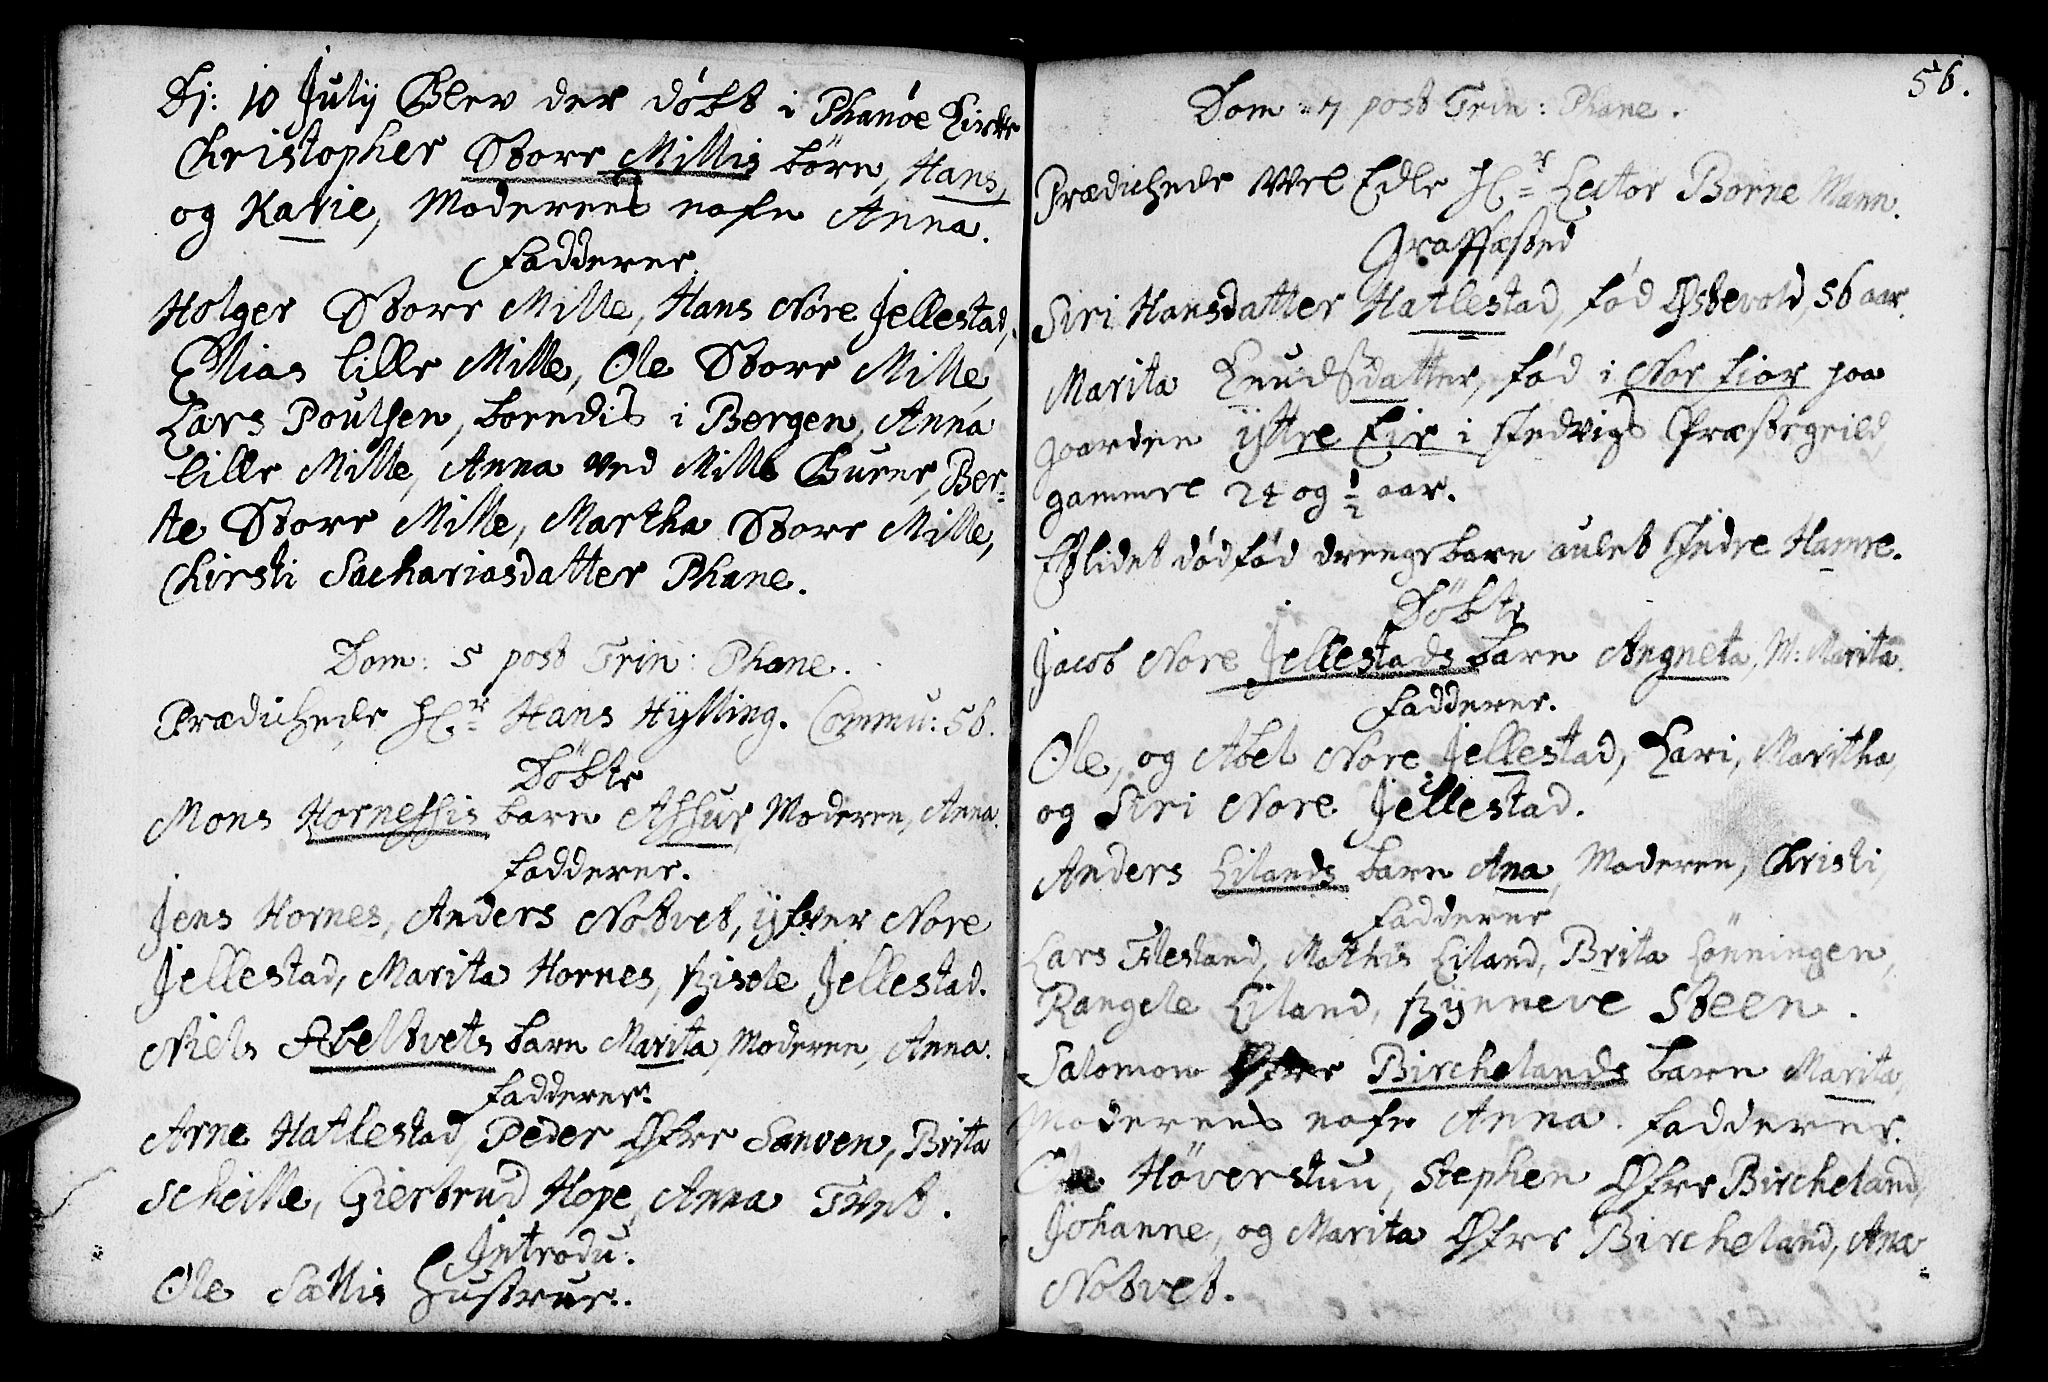 Dj: 10 Julij Blev der døbt i Phanøe Kirke
Christopher Store Millis børn, Hans,
og Karie, Moderens nafn Anna.
Fadderer
Holger Store Mille, Hans Nore Jellestad,
Elias lille Mille, Ole Store Mille,
Lars Poulsen, borendis i Bergen, Anna
lille Mille, Anna ved Mille Buene, Ber-
te Store Mille, Martha Store Mille,
Chirsti Sachariasdatter Phane.
Dom: 5 post Trin: Phane.
Prædichede Hr. Hans Hylling. Commu: 56.
Døbte
Mons Hornessis barn Assur, Moderen, Anna.
Fadderer.
Jens Hornes, Anders Nobvet, Ifver Nore
Jellestad, Marita Hornes, Zisele Jellestad.
Niels Abeltvets barn Marita, Moderen, Anna.
Fadderer.
Arne Hatlestad, Peder Øfre Sanven, Brita
Scheille, Giertrud Hope, Anna Tvet.
Introdu:
Ole Sællis Hustrue.
56.
Dom: 7 post Trin: Phane.
Prædichede Vel Edle Hr. Lector Borneman.
Graffæsted
Siri Hansdatter Hatlestad, fød Østevold, 56 aar.
Marita Knudsdatter, fød i Norfior paa
gaarden ijttre Eir i Indvigs Præstegield,
gammel 24 og ½ aar.
Et lidet dødfød drengebarn aulet Indre Hamre.
Døbte
Jacob Nore Jellestads barn Angneta, M: Marita.
Fadderer.
Ole, og Abel Nore Jellestad, Kari, Maritha,
og Siri Nore Jellestad.
Anders Eilands barn Ana, Moderen, Christi,
Fadderer
Lars Flesland, Mathis Eiland, Brita Lønningen,
Rangele Eiland, Zynneve Steen.
Salomon Øfre Birchelands barn Marita,
Moderens nafn Anna. Fadderer.
Høverstuu, Stephen Øfre Bircheland,
Johanne, og Marita Øfre Bircheland, Ana
Nobvet.